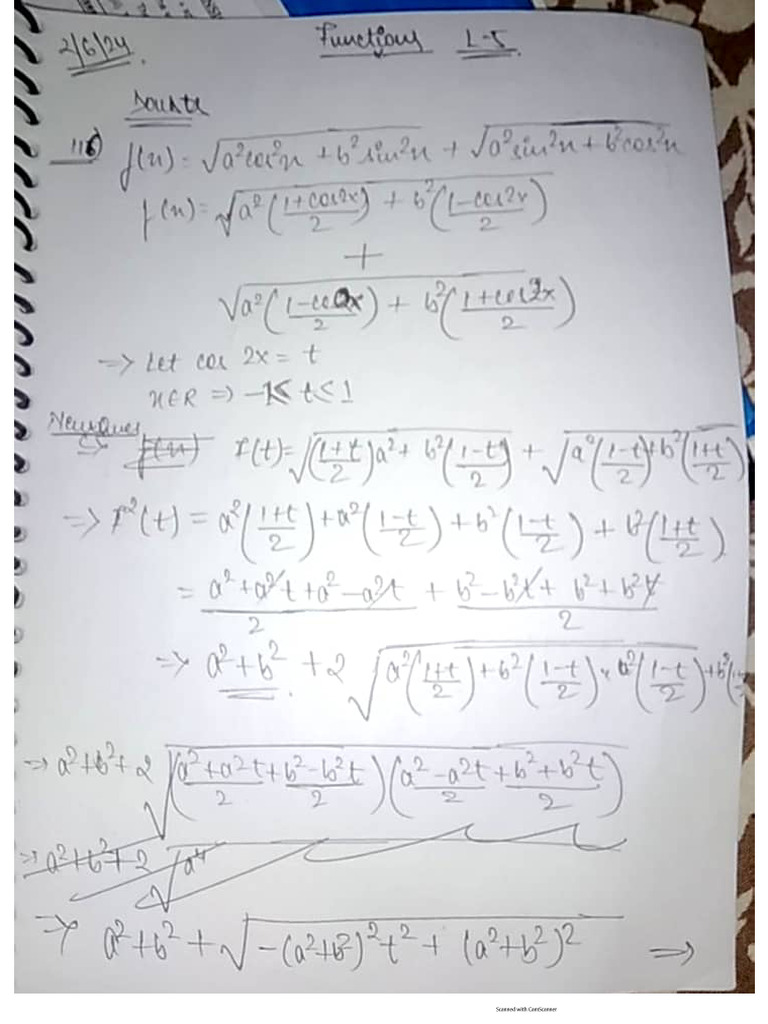 2/6/24.
Functions L-5.
Doubts
116) f(x) = √(a²cos²x + b²sin²x) + √(a²sin²x + b²cos²x)
f(x) = √(a²((1+cos2x)/2) + b²((1-cos2x)/2))
+
√(a²((1-cos2x)/2) + b²((1+cos2x)/2))
=> Let cos 2x = t
x∈R => -1≤ t ≤ 1
New Ques
=> f(x) F(t) = √(((1+t)/2)a² + b²((1-t)/2)) + √(a²((1-t)/2) + b²((1+t)/2))
=> F²(t) = a²((1+t)/2) + a²((1-t)/2) + b²((1-t)/2) + b²((1+t)/2)
= (a² + a²t + a² - a²t)/2 + (b² - b²t + b² + b²t)/2
=> a²+b² + 2 √(a²((1+t)/2) + b²((1-t)/2) × a²((1-t)/2) + b²(
=> a²+b²+2 √(((a²+a²t)/2 + (b²-b²t)/2)((a²-a²t)/2 + (b²+b²t)/2))
=> a²+b²+2 √a⁴
=> a²+b² + √(-(a²+b²)²t² + (a²+b²)²) =>
Scanned with CamScanner